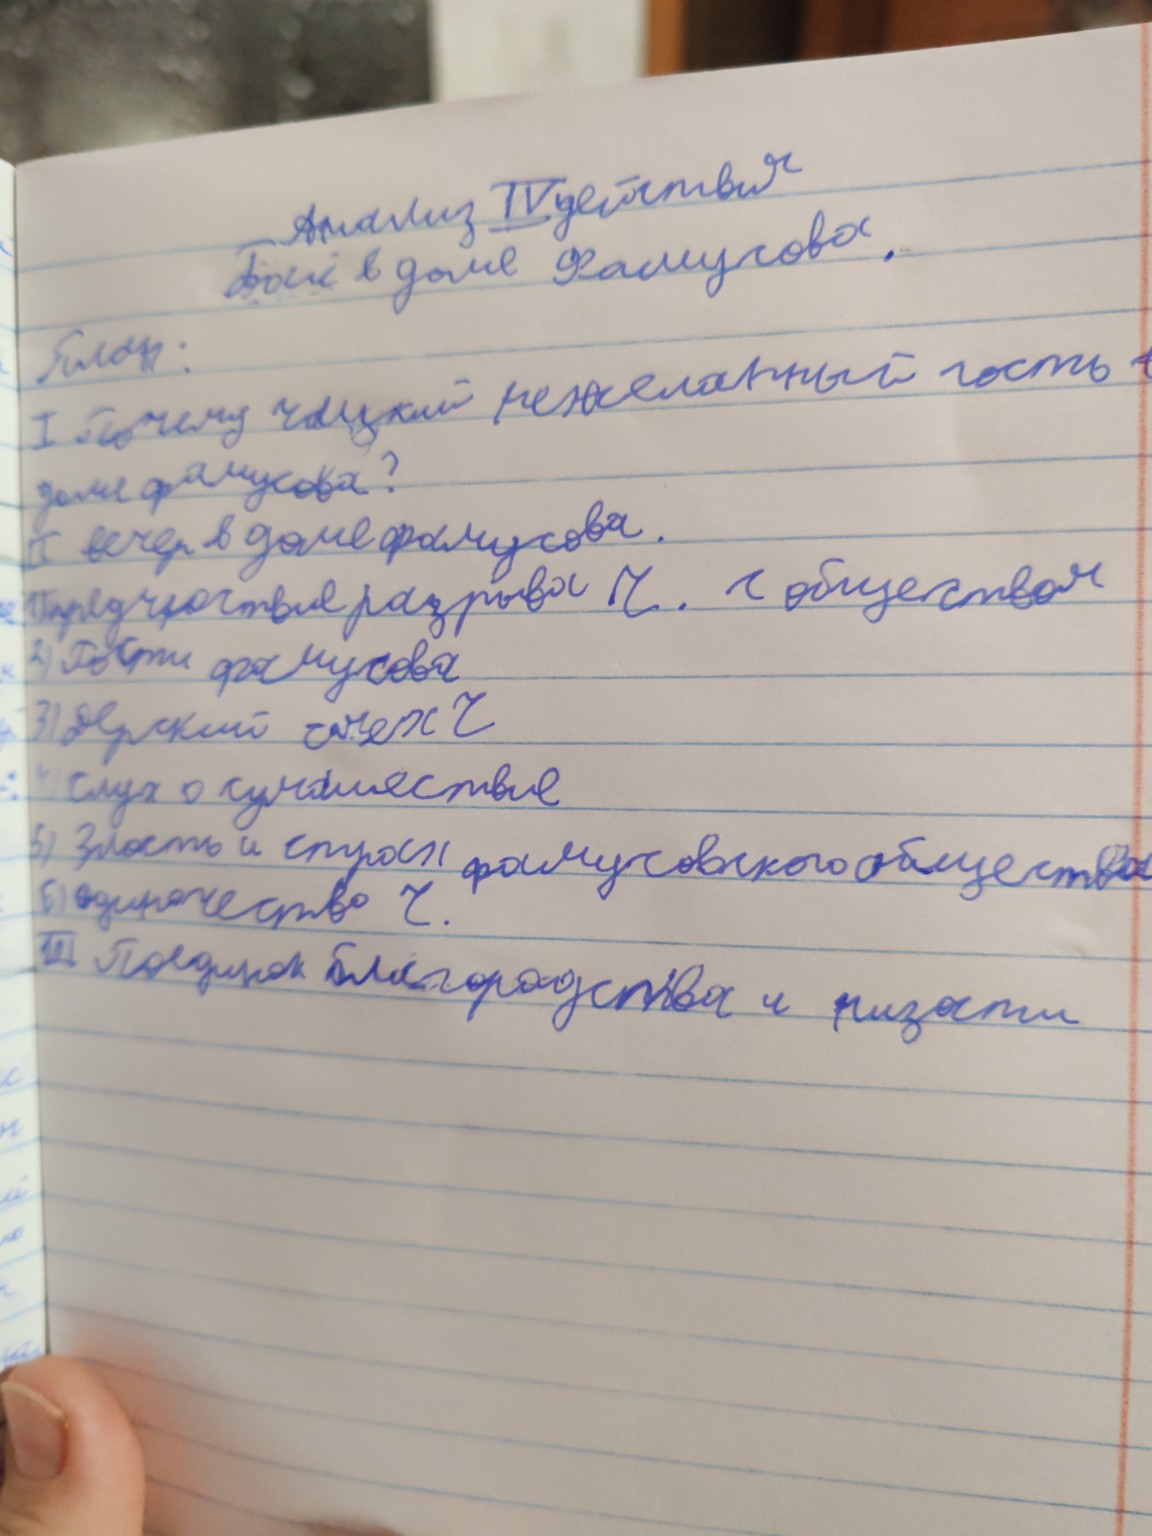 Анализ IV действия
Бал в доме Фамусова.
План:
I Почему чацкий нежеланный гость в
доме фамусова?
II вечер в доме фамусова.
1) предчувствие разрыва Ч. с обществом
2) Гости фамусова
3) Дерзкий смех Ч
4) слух о сумашествие
5) Злость и страх фамусовского общества
6) одиночество Ч.
III Поединок благородства и низости